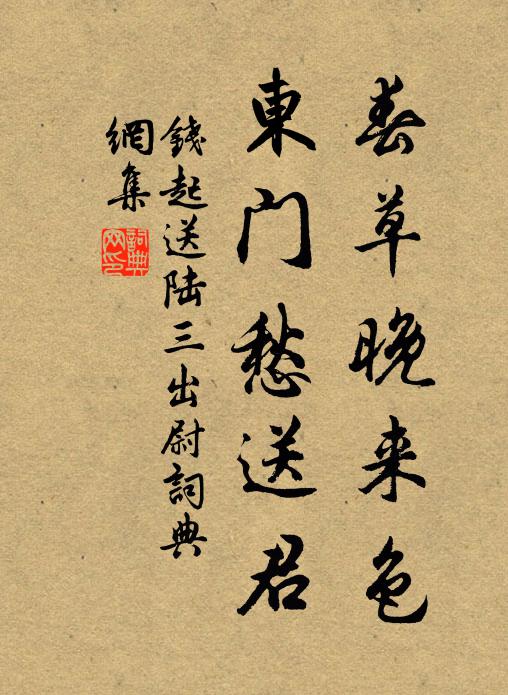 春草晚来色
東门愁送君
錢起送陆三出尉詞典
網集
詞典
网印